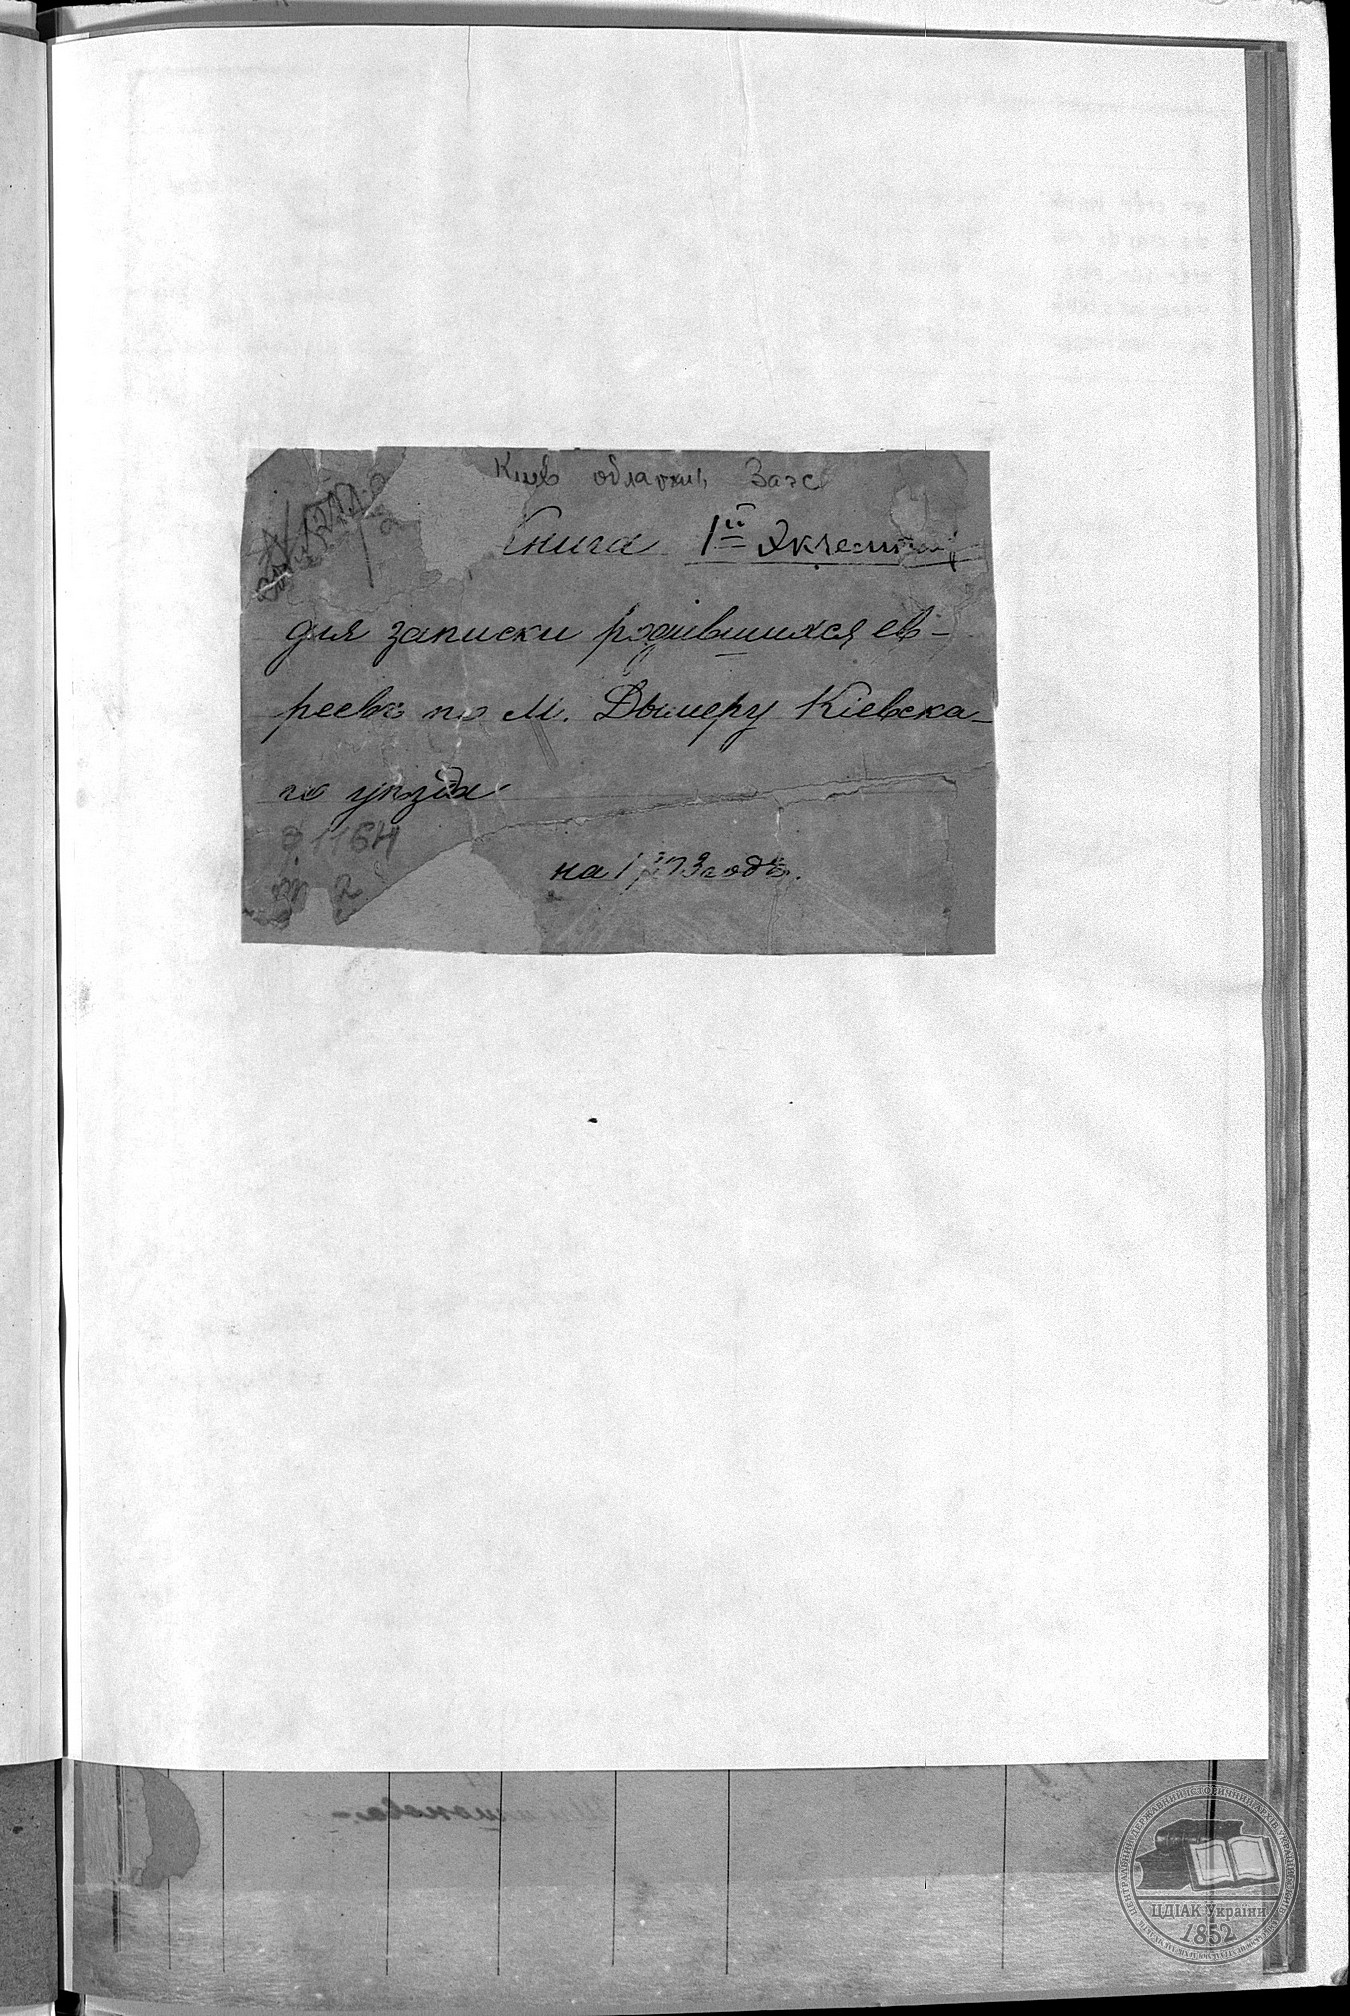 Киев облархив Загс
Книга 1й Экземпляр
для записки родившихся ев-
реевъ по м. Дымеру Кіевска-
го уѣзда
ф 1164
на 1873 годъ.
2
ЦДІАК України
1852